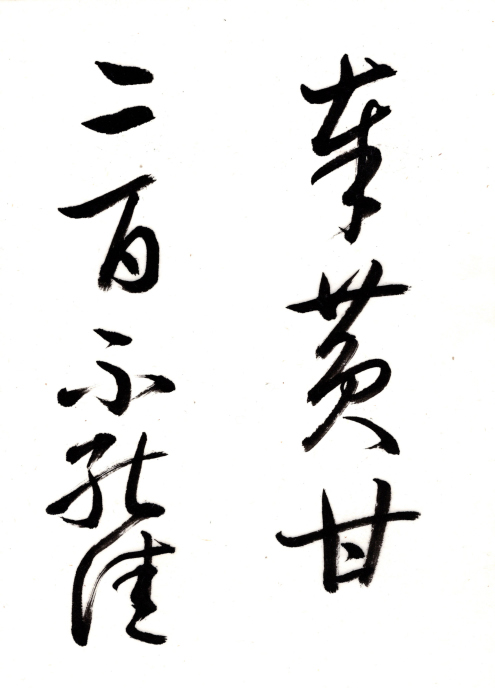 奉黄甘
二百不能佳